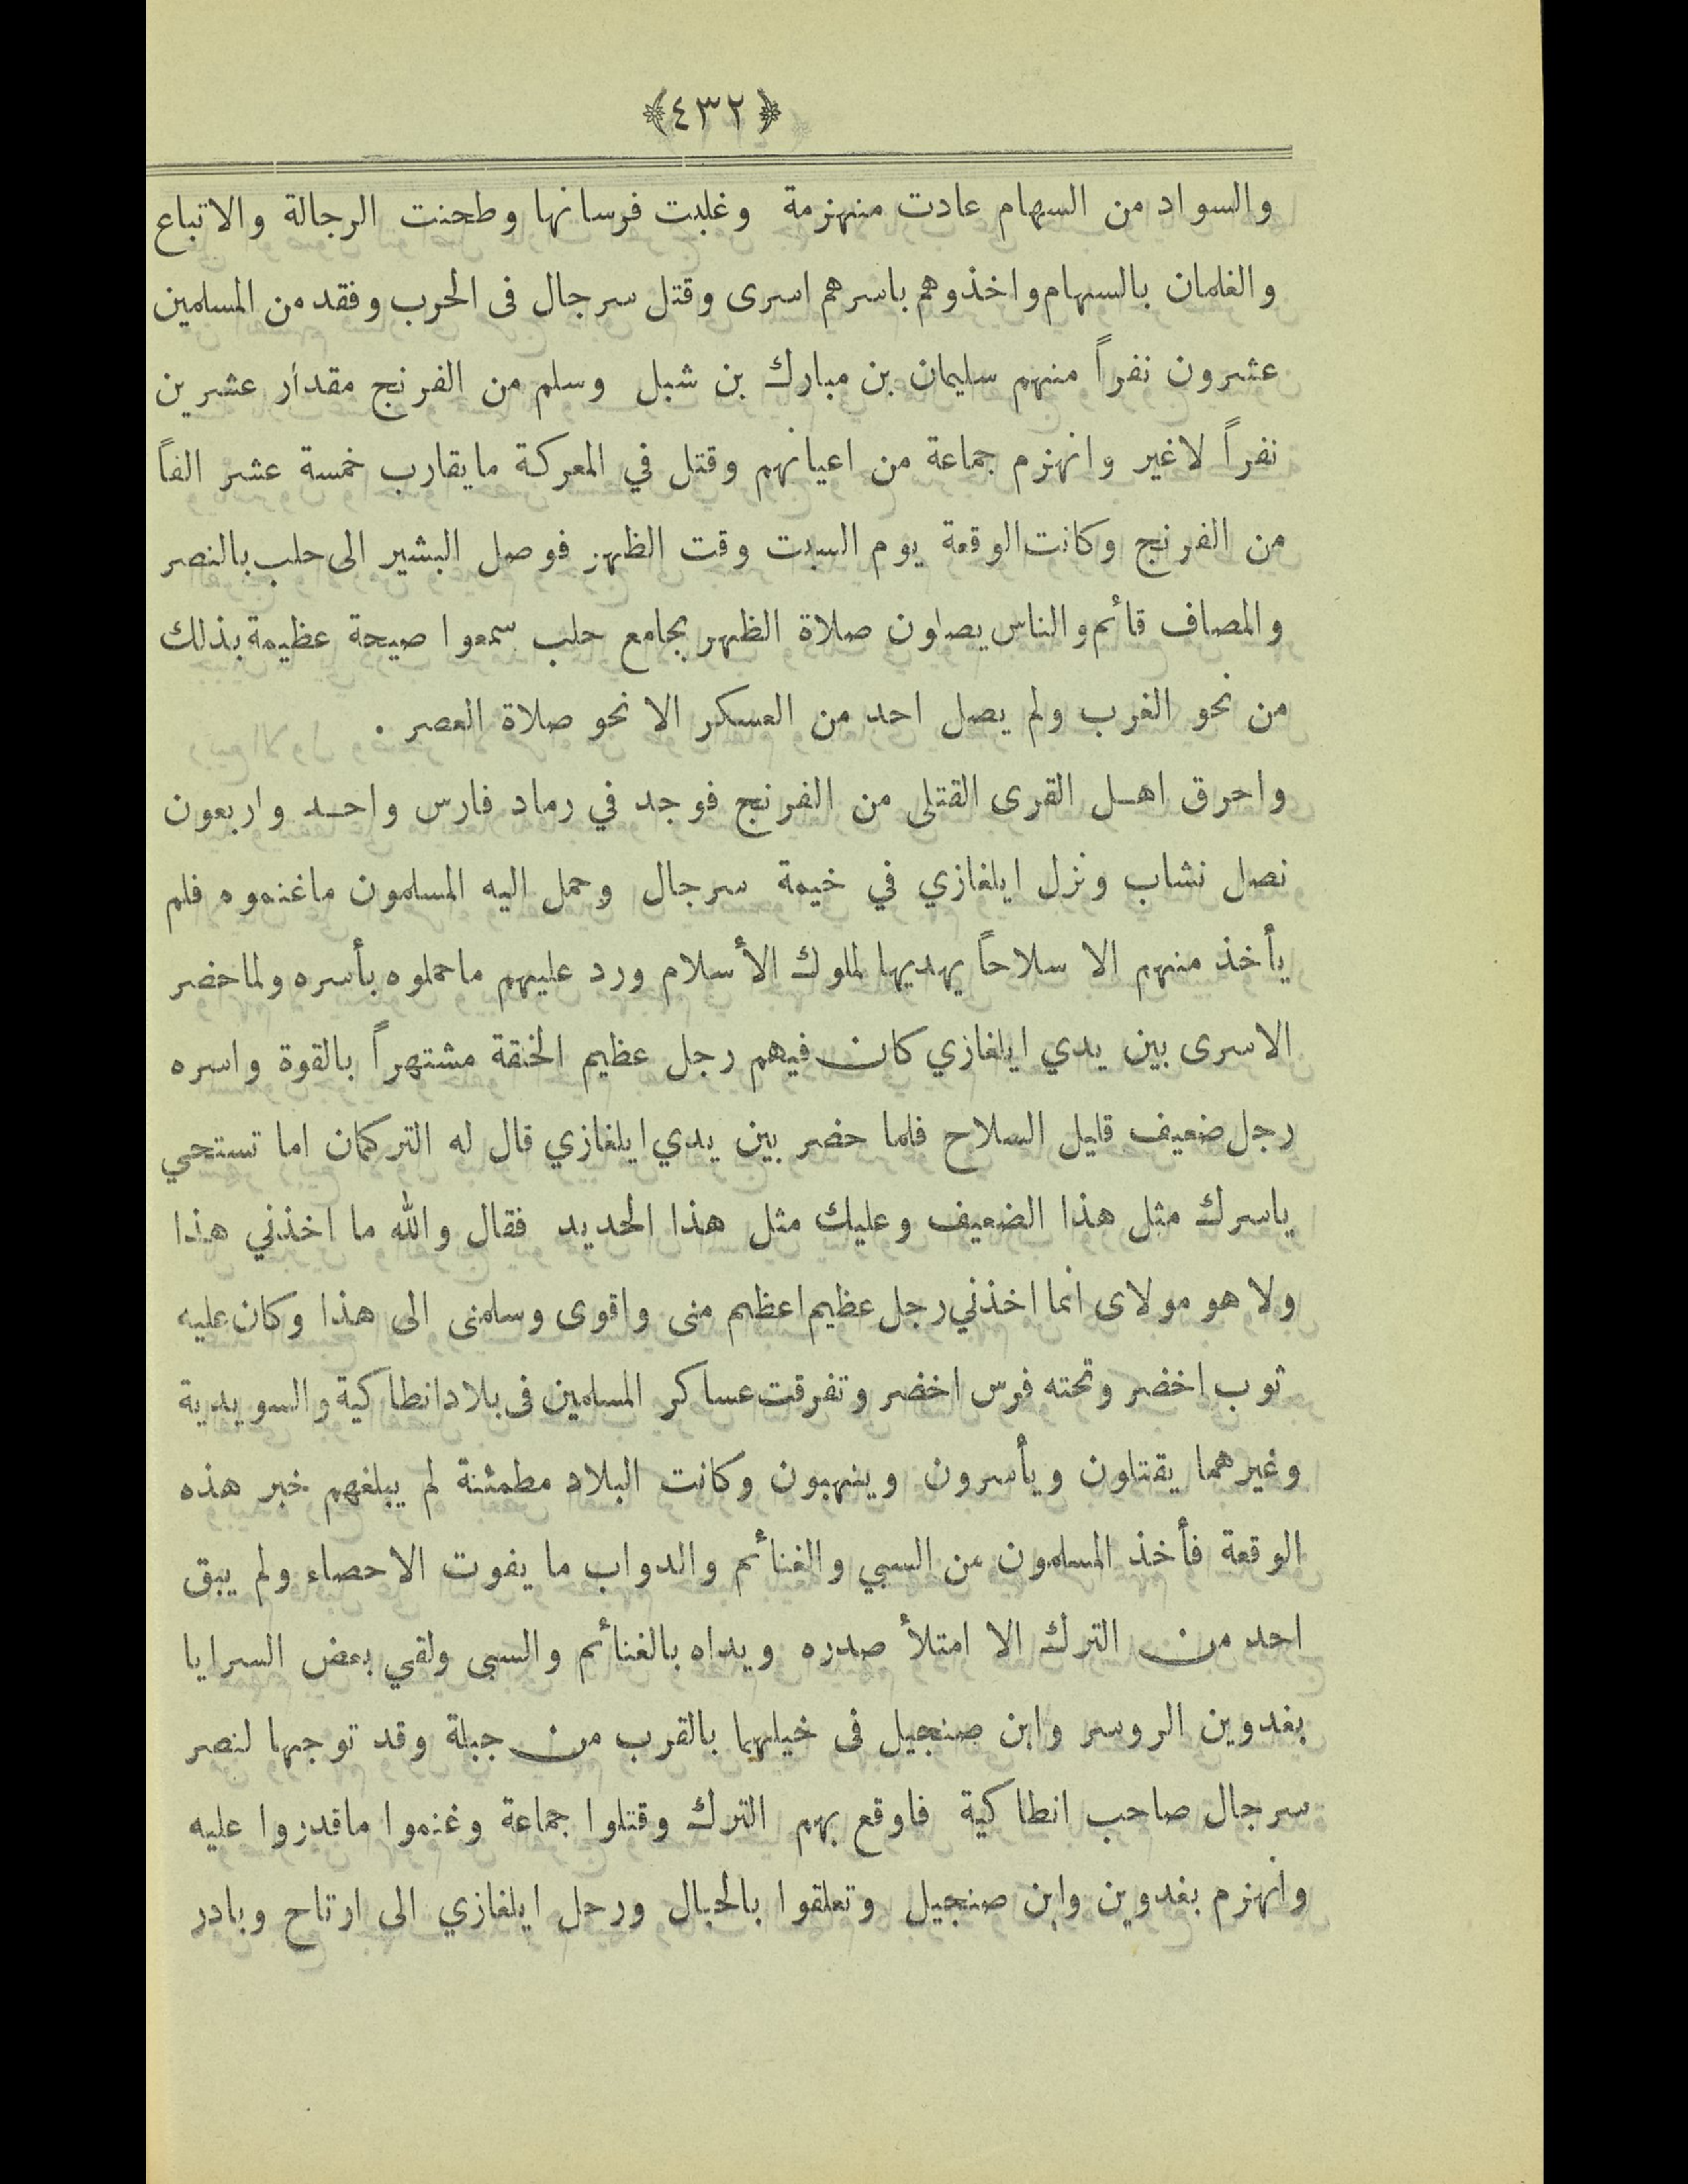 ﴿٤٣٢﴾
والسواد من السهام عادت منهزمة وغلبت فرسانها وطحنت الرجالة والاتباع
والغلمان بالسهام واخذوهم باسرهم اسرى وقتل سرجال فى الحرب وفقد من المسلمين
عشرون نفراً منهم سليمان بن مبارك بن شبل وسلم من الفرنج مقدار عشرين
نفراً لاغير وانهزم جماعة من اعيانهم وقتل في المعركة مايقارب خمسة عشر الفاً
من الفرنج وكانت الوقعة يوم السبت وقت الظهر فوصل البشير الى حلب بالنصر
والمصاف قائم والناس يصلون صلاة الظهر بجامع حلب سمعوا صيحة عظيمة بذلك
من نحو الغرب ولم يصل احد من العسكر الا نحو صلاة العصر .
واحرق اهل القرى القتلى من الفرنج فوجد في رماد فارس واحد واربعون
نصل نشاب ونزل ايلغازي في خيمة سرجال وحمل اليه المسلمون ماغنموه فلم
يأخذ منهم الا سلاحاً يهديها لملوك الأسلام ورد عليهم ماحملوه بأسره ولما حضر
الاسرى بين يدي ايلغازي كان فيهم رجل عظيم الخلقة مشتهراً بالقوة واسره
رجل ضعيف قليل السلاح فلما حضر بين يدي ايلغازي قال له التركمان اما تستحي
ياسرك مثل هذا الضعيف وعليك مثل هذا الحديد فقال والله ما اخذني هذا
ولا هو مولاى انما اخذني رجل عظيم اعظم منى واقوى وسلمنى الى هذا وكان عليه
ثوب اخضر وتحته فرس اخضر وتفرقت عساكر المسلمين فى بلاد انطاكية والسويدية
وغيرهما يقتلون ويأسرون وينهبون وكانت البلاد مطمئنة لم يبلغهم خبر هذه
الوقعة فأخذ المسلمون من السبي والغنائم والدواب ما يفوت الاحصاء ولم يبق
احد من الترك الا امتلأ صدره ويداه بالغنائم والسبى ولقي بعض السرايا
بغدوين الروسر وابن صنجيل فى خيلهما بالقرب من جبلة وقد توجها لنصر
سرجال صاحب انطاكية فاوقع بهم الترك وقتلوا جماعة وغنموا ماقدروا عليه
وانهزم بغدوين وابن صنجيل وتعلقوا بالجبال ورحل ايلغازي الى ارتاح وبادر